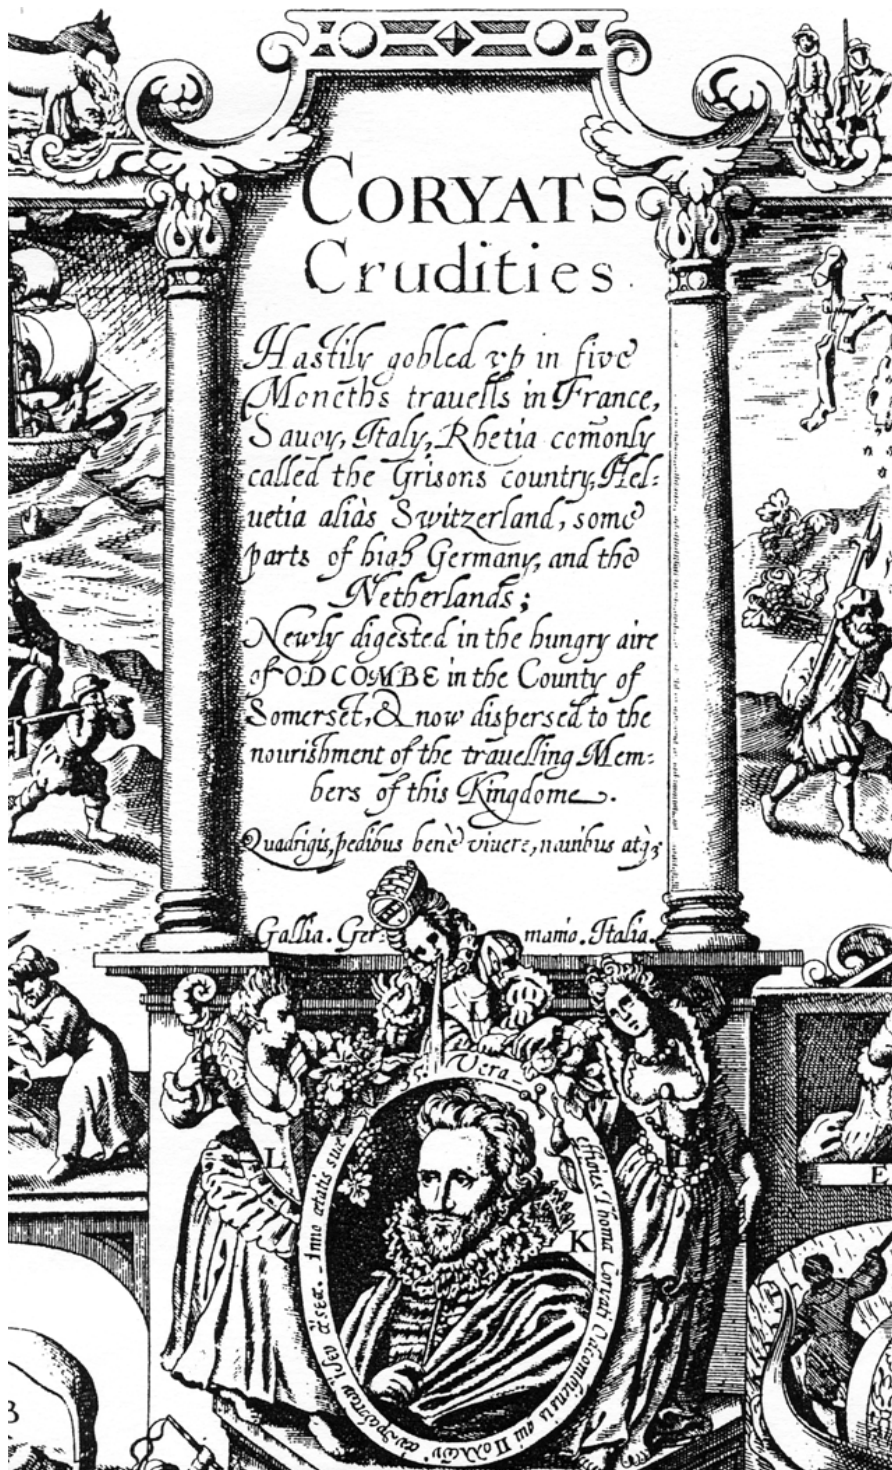 CORYATS
Crudities
Hastily gobled vp in five
Moneths trauells in France,
Sauoy, Italy, Rhetia comōnly
called the Grisons country, Hel:
uetia aliàs Switzerland, some
parts of high Germany, and the
Netherlands;
Newly digested in the hungry aire
of ODCOMBE in the County of
Somerset, & now dispersed to the
nourishment of the trauelling Mem:
bers of this Kingdome.
Quadrigis, pedibus benè viuere, nauibus atq₃
Gallia. Ger: manio. Italia.
Vera
effigies Thomæ Coryati Odcombiensis qui Πολλῶν
ἀνθρώπων ἴδεν ἄστεα. Anno ætatis suæ
L
I
K
E
B